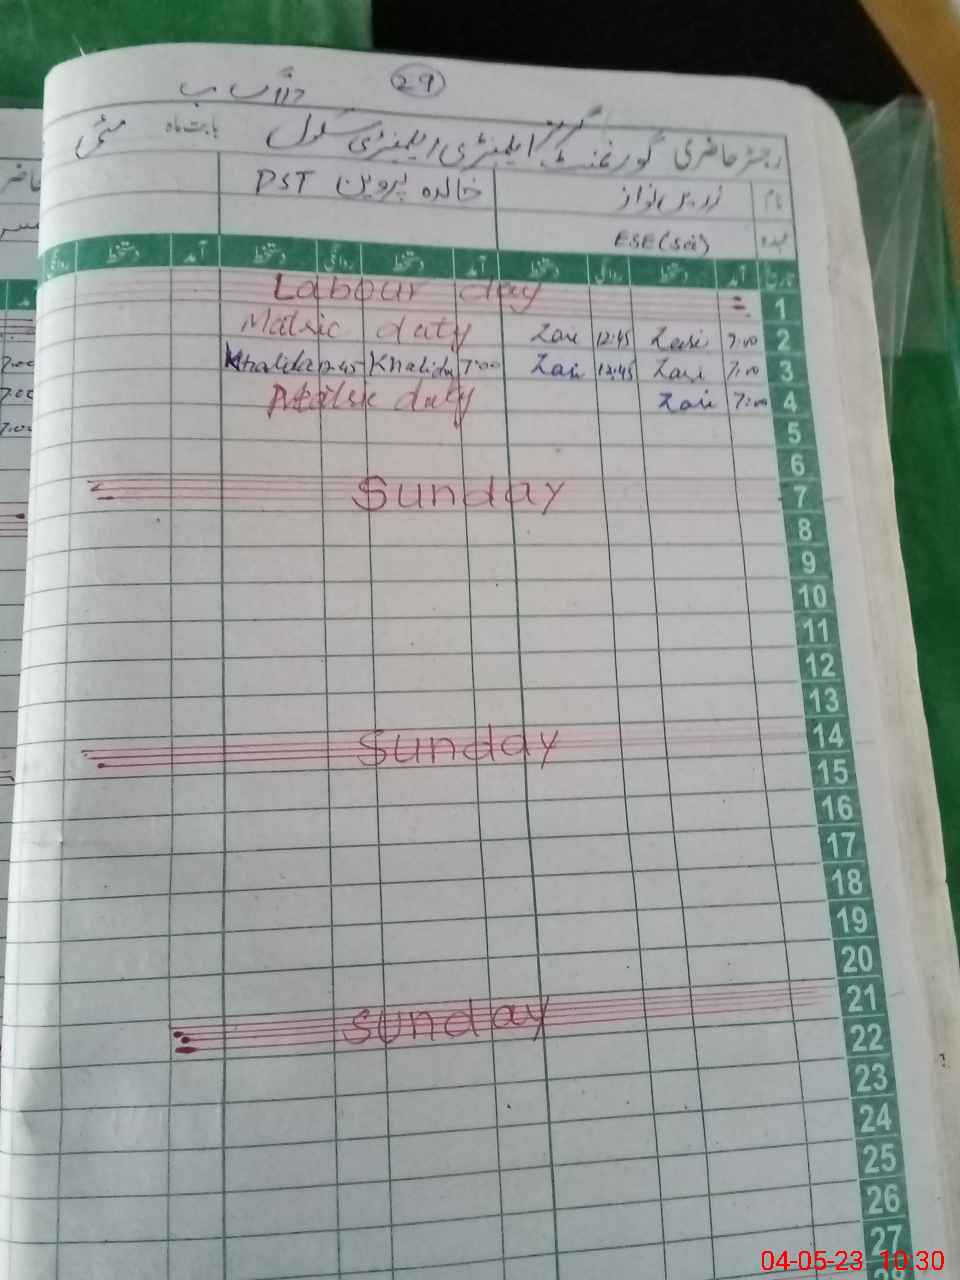 29
رجسٹر حاضری گورنمنٹ گرلز ایلیمنٹری سکول بابت ماہ مئی
نام زرین نواز خالدہ پروین PST
عہدہ ESE (Sci)
تاریخ آمد دستخط روانگی دستخط آمد دستخط روانگی دستخط آمد دستخط روانگی
1 Labour day
2 7:00 Zari 12:45 Zari Matric duty
3 7:00 Zari 12:45 Zari 7:00 Khalida 12:45 Khalida
4 7:00 Zari duty
5
6
7 Sunday
8
9
10
11
12
13
14 Sunday
15
16
17
18
19
20
21 Sunday
22
23
24
25
26
27
28
7:00
7:00
7:00
04-05-23 10:30